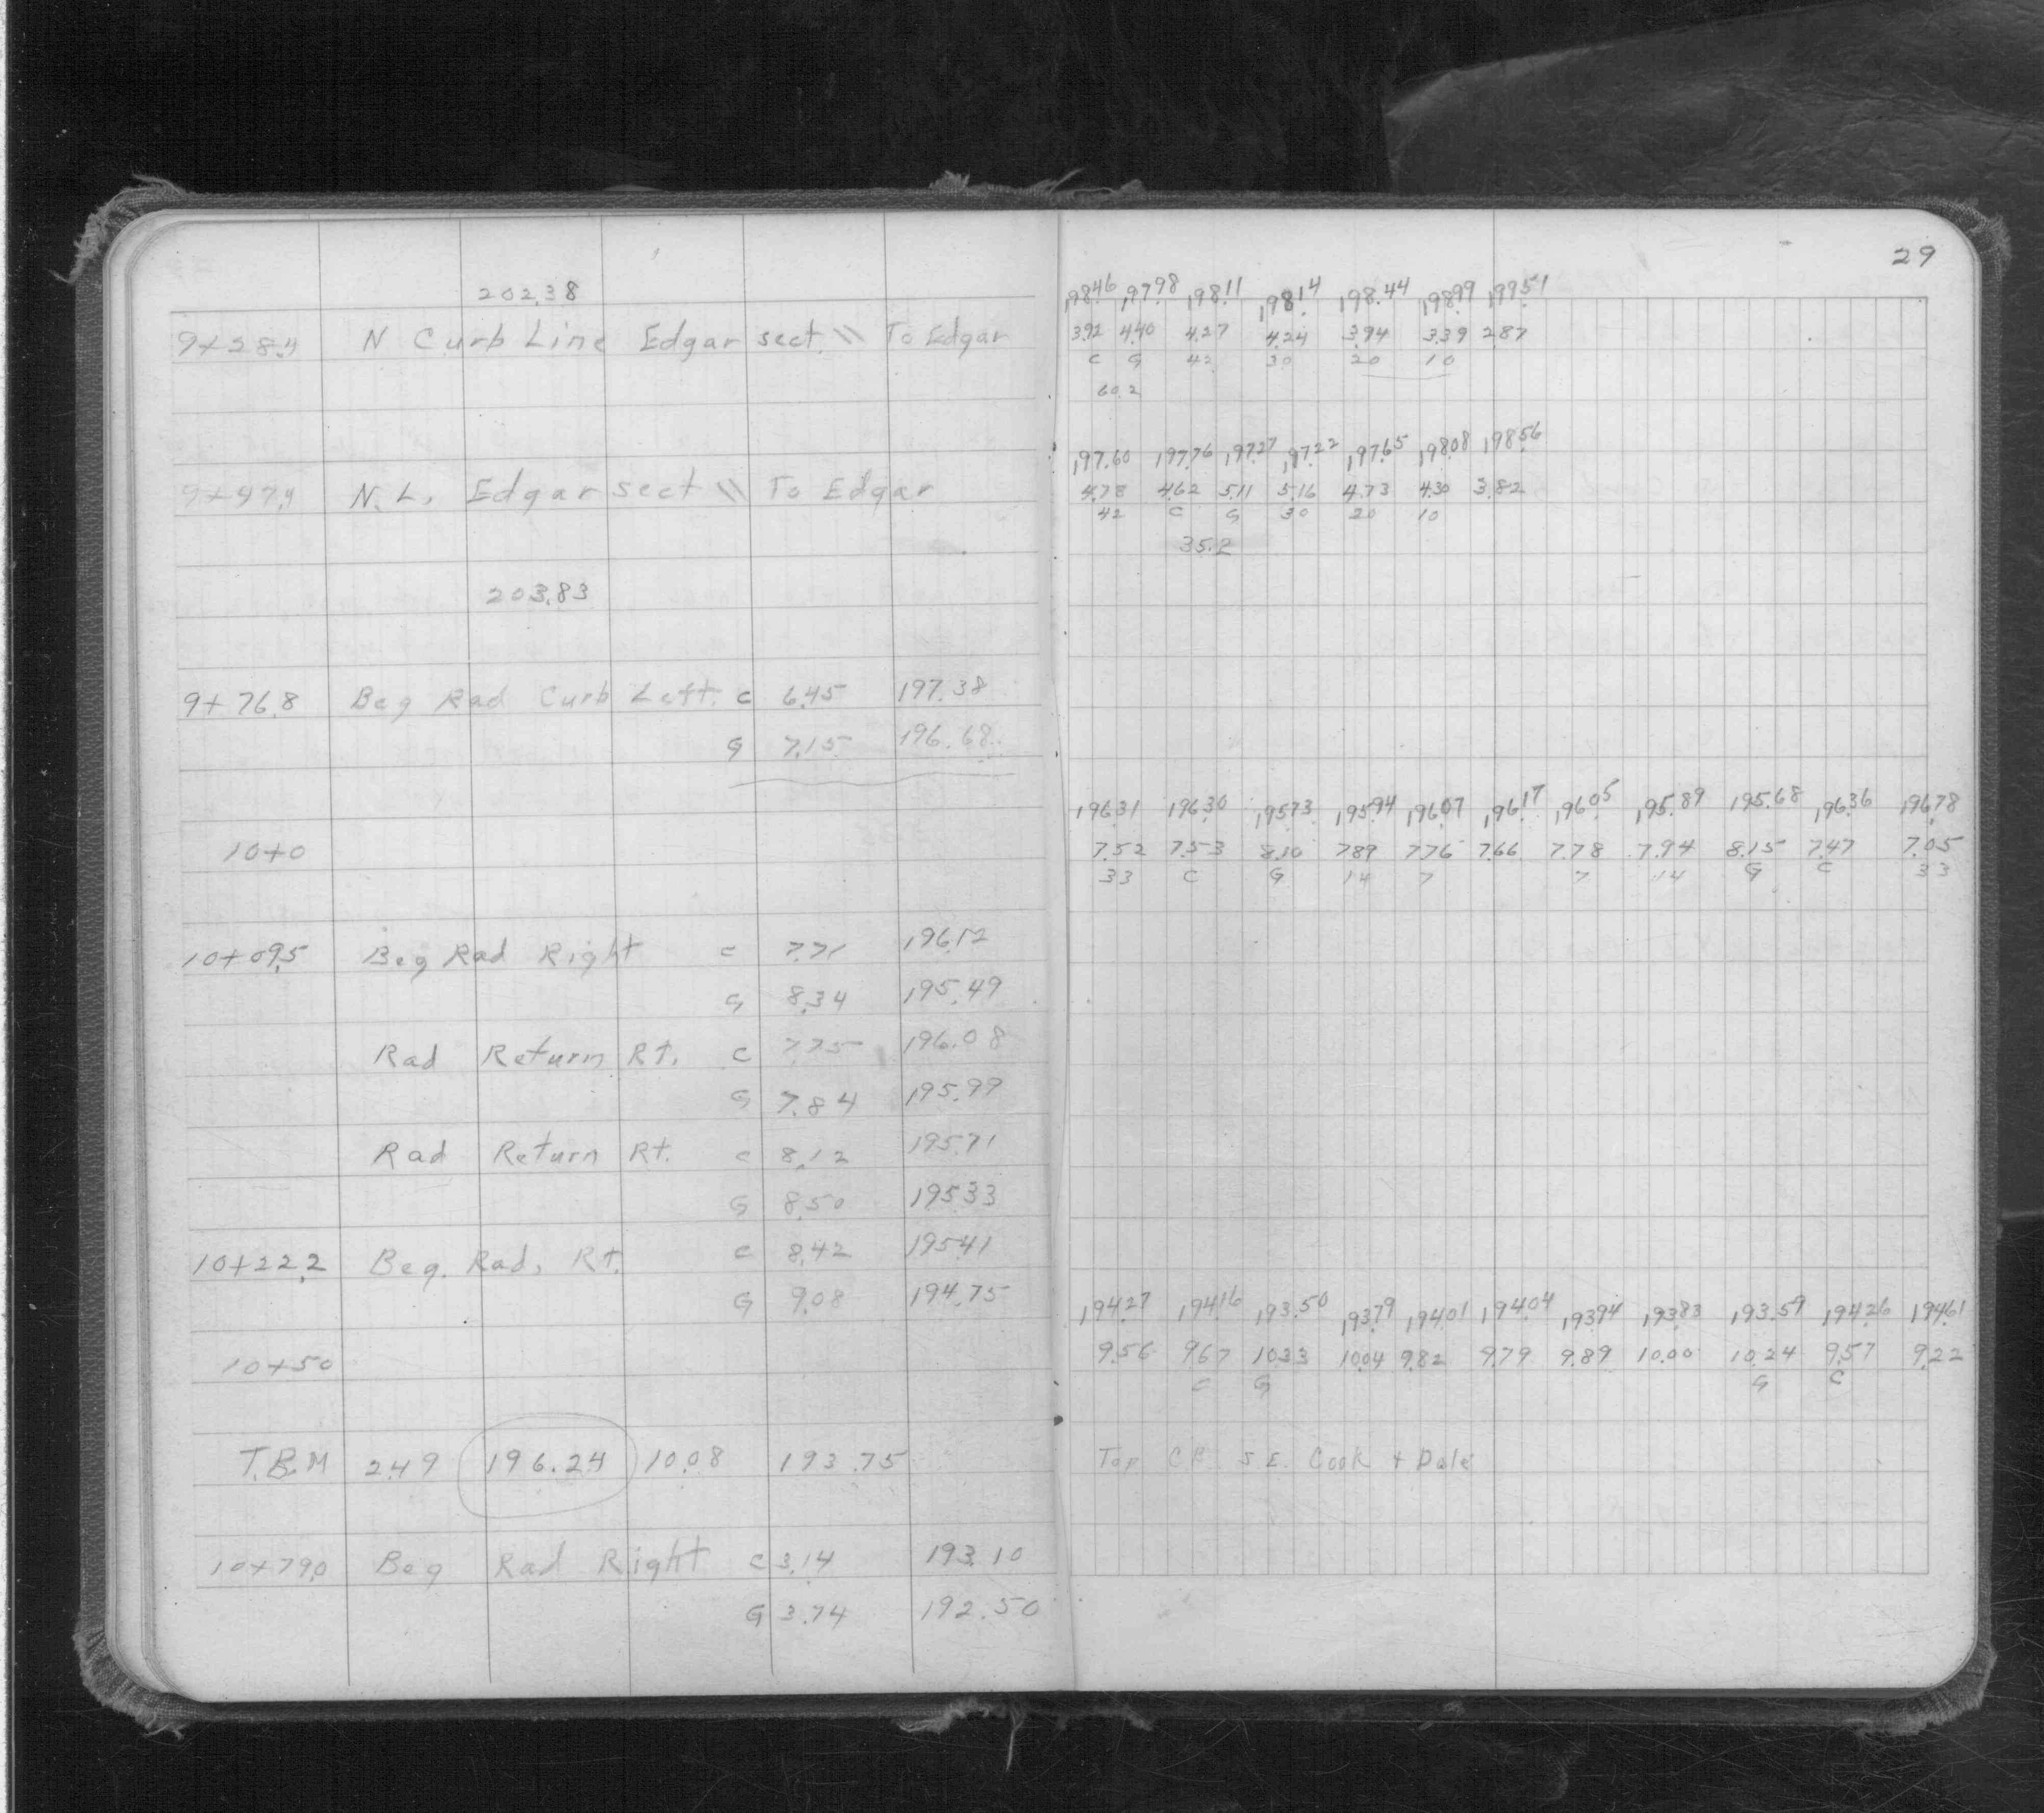 29
202.38
198.46 197.98 198.11 198.14 198.44 198.99 199.51
9+28.4 N Curb Line Edgar sect. \\ To Edgar 3.92 4.40 4.27 4.24 3.94 3.39 2.87
C G 42 30 20 10
60.2
197.60 197.76 197.27 197.22 197.65 198.08 198.56
9+47.4 N.L. Edgar sect \\ To Edgar 4.78 4.62 5.11 5.16 4.73 4.30 3.82
42 C G 30 20 10
35.2
203.83
9+76.8 Beg Rad Curb Left. C 6.45 197.38
G 7.15 196.68
196.31 196.30 195.73 195.94 196.07 196.17 196.05 195.89 195.68 196.36 196.78
10+0 7.52 7.53 8.10 7.89 7.76 7.66 7.78 7.94 8.15 7.47 7.05
33 C G 14 7 7 14 G C 33
10+09.5 Beg Rad Right C 7.71 196.12
G 8.34 195.49
Rad Return Rt. C 7.75 196.08
G 7.84 195.99
Rad Return Rt. C 8.12 195.71
G 8.50 195.33
10+22.2 Beg. Rad, Rt. C 8.42 195.41
G 9.08 194.75
194.27 194.16 193.50 193.79 194.01 194.04 193.94 193.83 193.59 194.26 194.61
10+50 9.56 9.67 10.33 10.04 9.82 9.79 9.89 10.00 10.24 9.57 9.22
C G G C
T.B.M 2.49 196.24 10.08 193.75 Top C.B. S.E. Cook + Dale
10+79.0 Beg Rad Right C 3.14 193.10
G 3.74 192.50